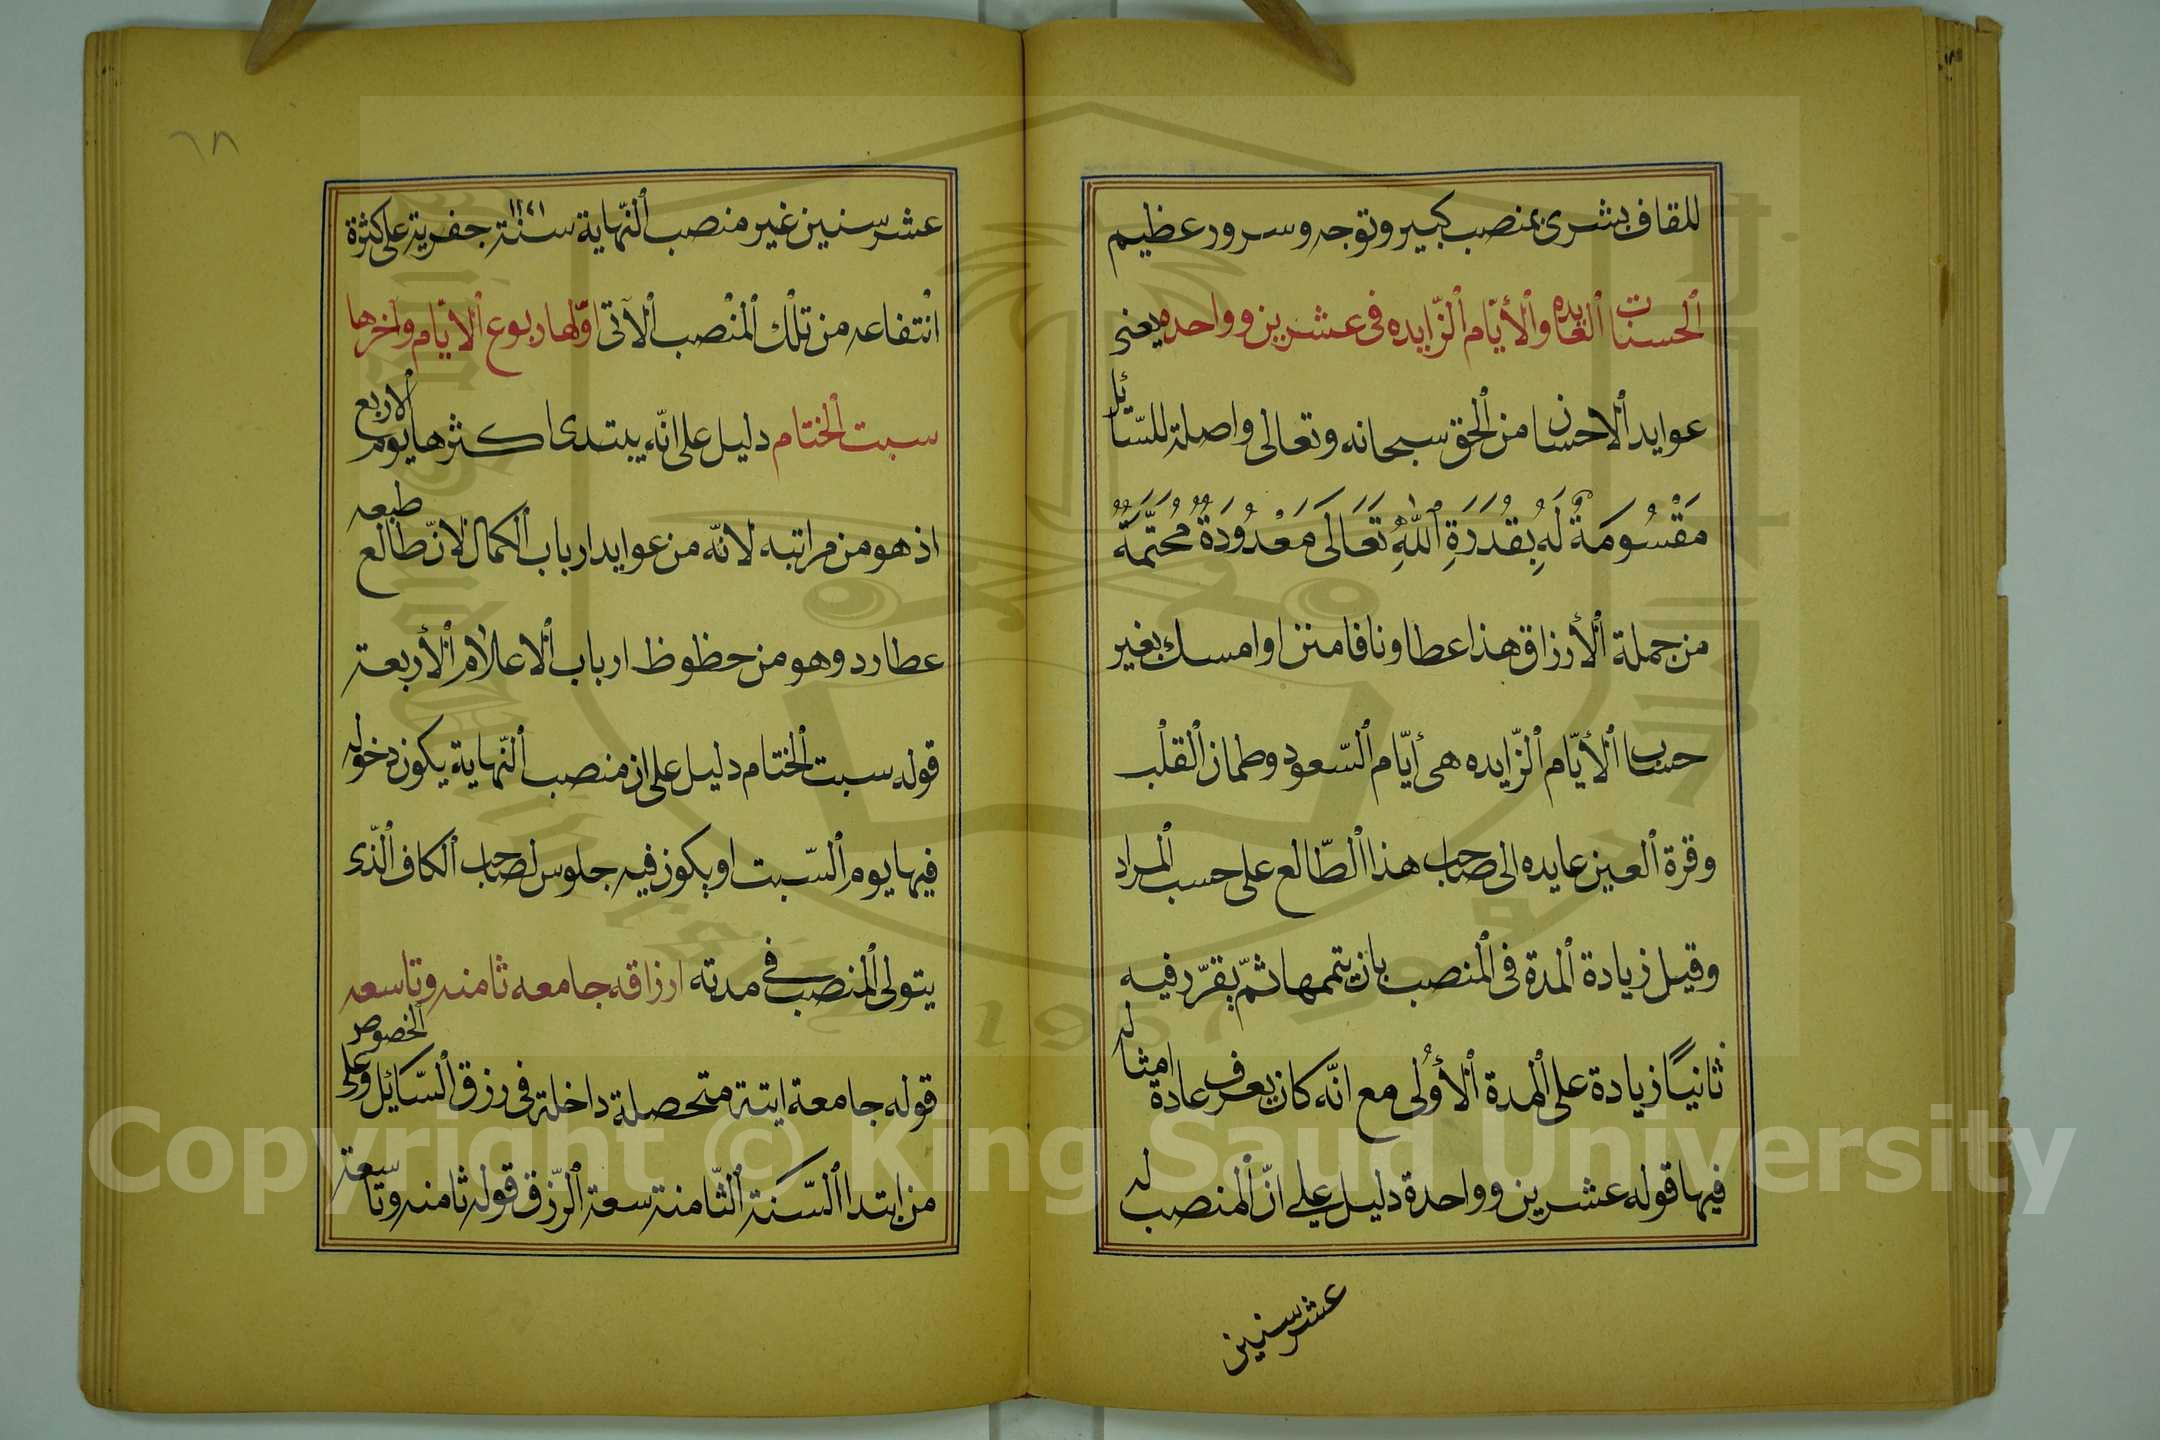 للقاف بشرى بمنصب كبير وتوجه وسرور عظيم
الحسنات العايده والأيّام الزّايده فى عشرين وواحده يعنى
عوايد الاحسان من الحق سبحانه وتعالى واصلة للسّائل
مَقْسُومَةٌ لَهِ بِقُدَرَةِ اللهِ تَعَالَى مَعْدُودَةٌ مُحَتَّمَةٌ
من جملة الأرزاق هذا عطاونا فامنن او امسك بغير
حساب الأيّام الزّايده هى أيّام السّعود وطمان القلب
وقرة العين عايده الى صاحب هذا الطّالع على حسب المراد
وقيل زيادة المدة فى المنصب بان يتممها ثمّ يقرّر فيه
ثانيًا زيادة على المدة الأولى مع انّه كان يعرف عادة امثاله
فيها قوله عشرين وواحدة دليل على انّ المنصب له
عشر سنين
٦٨
عشر سنين غير منصب النّهاية سنة ١٢٧١ جفرية على كثرة
انتفاعه من تلك المنصب الآتى اوّلها ربوع الايّام وآخرها
سبت الختام دليل على انّه يبتدى اكثرها يوم الاربع
اذ هو من مراتبه لانّه من عوايد ارباب الكمال لانّ طالع طبعه
عطارد وهو من حظوظ ارباب الاعلام الأربعة
قوله سبت الختام دليل على ان منصب النّهاية يكون دخوله
فيها يوم السّبت او يكون فيه جلوس لصاحب الكاف الّذى
يتولى المنصب فى مدته ارزاقه جامعه ثامنه وتاسعه
قوله جامعة ايتة متحصلة داخلة فى رزق السّائل وعلى الخصوص
من ابتدا السّكنة الثّامنة سعة الرّزق قوله ثامنه وتاسعة
Copyright © King Saud University
1957